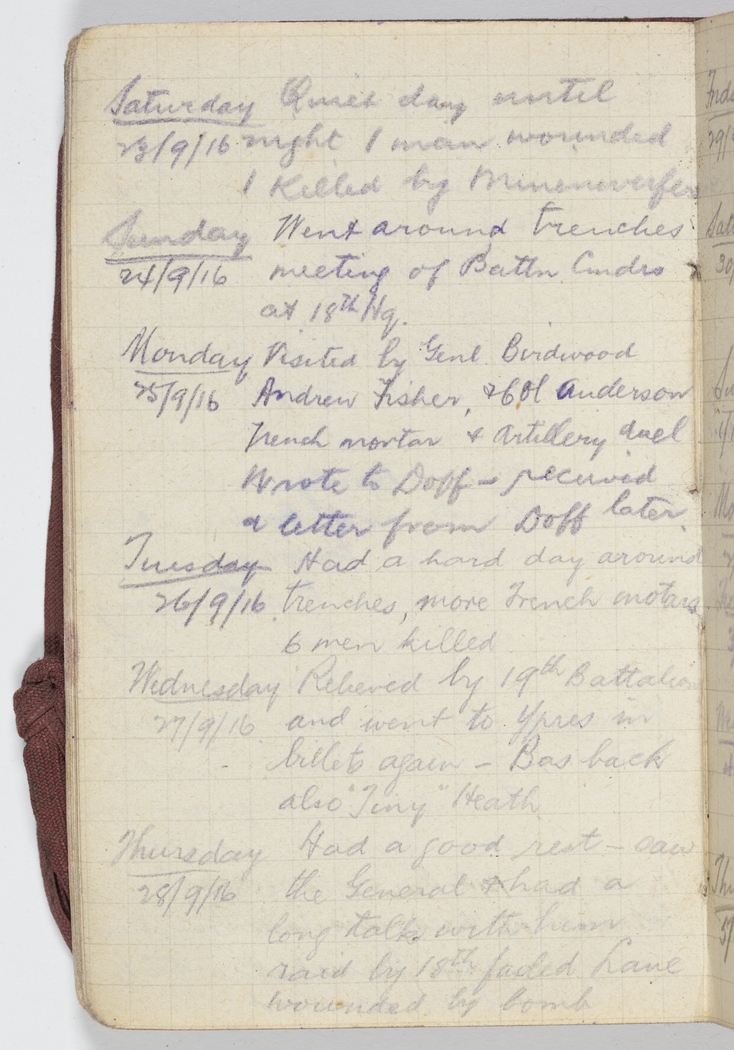 Saturday Quiet day until
23/9/16 night 1 man wounded
1 killed by Minenwerfer
Sunday Went around trenches
24/9/16 meeting of Battn Cmdrs
at 18th Hq.
Monday Visited by Genl. Birdwood
25/9/16 Andrew Fisher, & Col Anderson
Trench mortar & Artillery duel
Wrote to Doff – received
a letter from Doff later.
Tuesday Had a hard day around
26/9/16 trenches, more Trench motars
6 men killed
Wednesday Relieved by 19th Battalion
27/9/16 and went to Ypres in
billets again – Bas back
also "Tiny" Heath
Thursday Had a good rest – saw
28/9/16 the General & had a
long talk with him
raid by 18th failed Lane
wounded by bomb